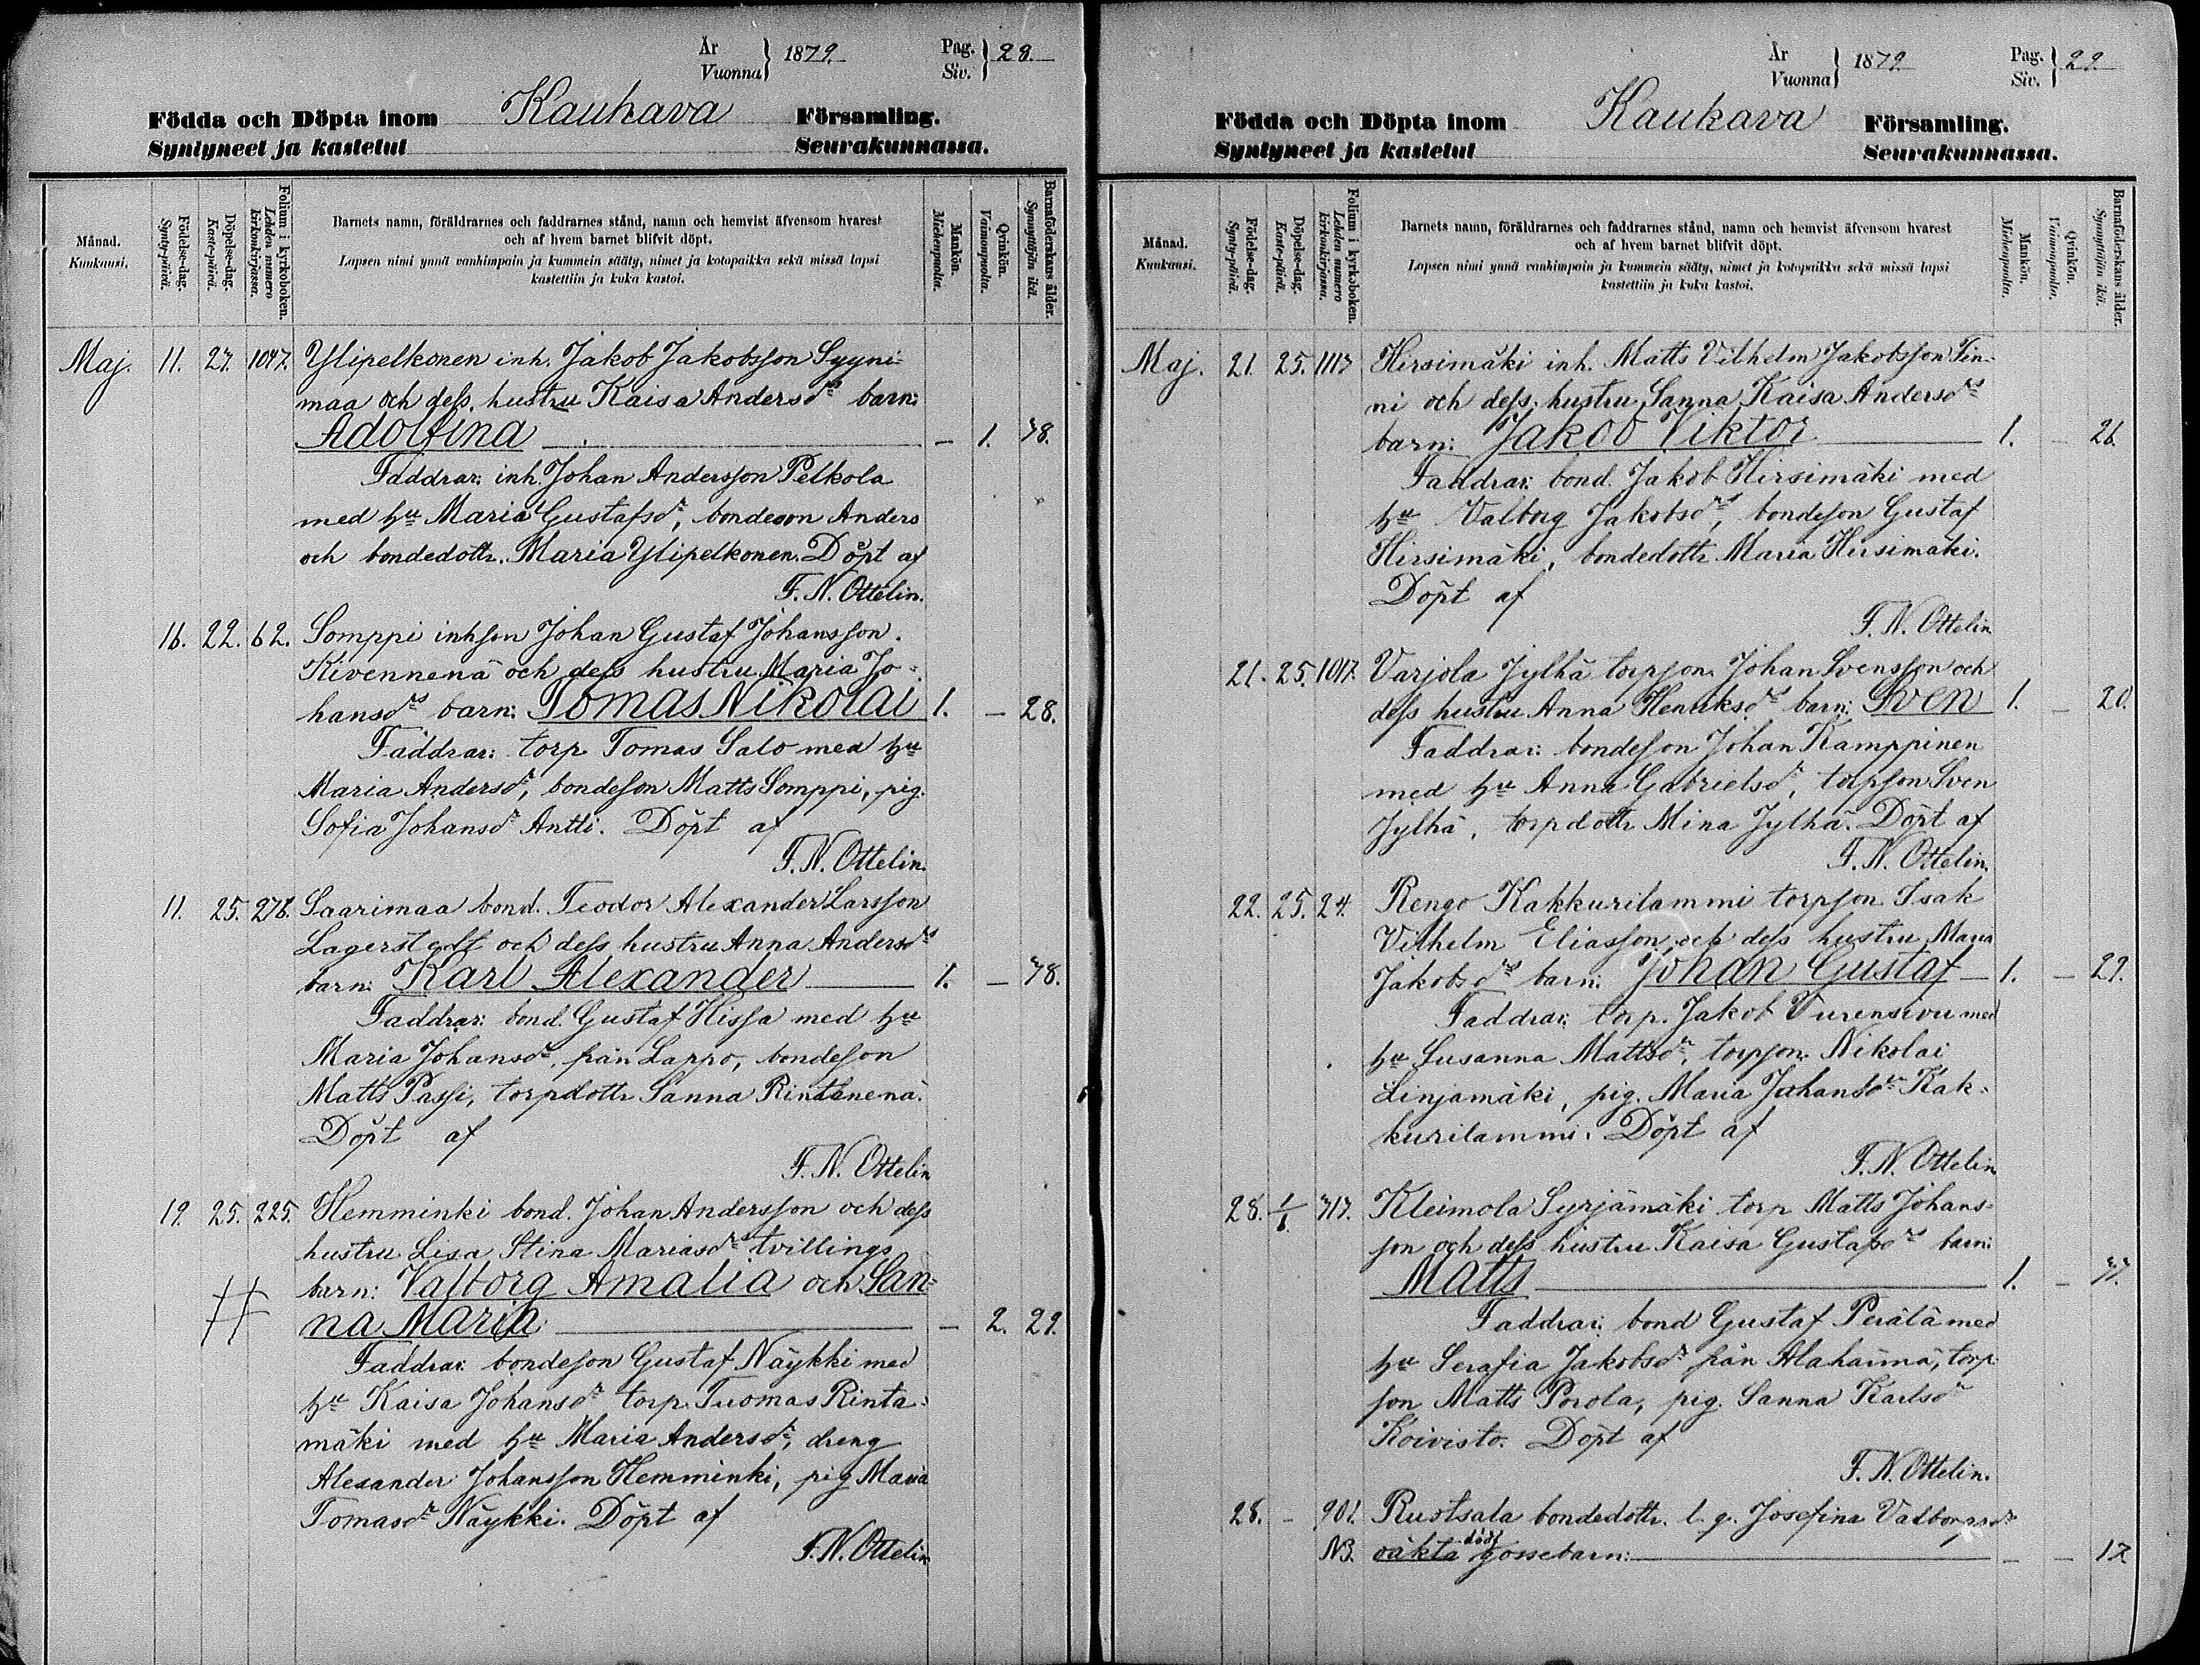 År
Vuonna } 1879.
Pag.
Siv. } 28.
Födda och Döpta inom Kauhava Församling.
Syntyneet ja kastetut Seurakunnassa.
Månad.
Kuukausi.
Födelse-dag.
Synty-päivä.
Döpelse-dag.
Kaste-päivä.
Folium i kyrkoboken.
Lehden numero kirkonkirjassa.
Barnets namn, föräldrarnes och faddrarnes stånd, namn och hemvist äfvensom hvarest
och af hvem barnet blifvit döpt.
Lapsen nimi ynnä vanhimpain ja kummein sääty, nimet ja kotopaikka sekä missä lapsi
kastettiin ja kuka kastoi.
Mankön.
Miehenpuolta.
Qvinkön.
Vaimonpuolta.
Barnaföderskans ålder.
Synnyttäjän ikä.
Maj. 11. 27. 1047. Ylipelkonen inh. Jakob Jakobsson Syyni-
maa och dess hustru Kaisa Andersdrs barn:
Adolfina — 1. 38.
Faddrar: inh. Johan Andersson Pelkola
med hu Maria Gustafsdr, bondeson Anders
och bondedottr. Maria Ylipelkonen. Döpt af
F. N. Ottelin.
16. 22. 62. Somppi inhson Johan Gustaf Johansson
Kivennenä och dess hustru Maria Jo-
hansdrs barn: Tomas Nikolai 1. — 28.
Faddrar: torp. Tomas Salo med hu
Maria Andersdr, bondesson Matts Somppi, pig.
Sofia Johansdr Antti. Döpt af
F. N. Ottelin.
11. 25. 278. Saarimaa bond. Teodor Alexander Larsson
Lagerstedt och dess hustru Anna Andersdrs
barn: Karl Alexander 1. — 38.
Faddrar: bond. Gustaf Hissa med hu
Maria Johansdr från Lappo, bondesson
Matts Passi, torpdottr Sanna Rintanenä.
Döpt af
F. N. Ottelin
19. 25. 225. Hemminki bond. Johan Andersson och dess
hustru Lisa Stina Mariasdrs tvillings
barn: Valborg Amalia och San-
na Maria — 2. 29.
Faddrar: bondesson Gustaf Näykki med
hu Kaisa Johansdr torp. Tuomas Rinta-
mäki med hu Maria Andersdr, dreng
Alexander Johansson Hemminki, pig Maria
Tomasdr Näykki. Döpt af
F. N. Ottelin
År
Vuonna } 1879.
Pag.
Siv. } 29.
Födda och Döpta inom Kauhava Församling.
Syntyneet ja kastetut Seurakunnassa.
Månad.
Kuukausi.
Födelse-dag.
Synty-päivä.
Döpelse-dag.
Kaste-päivä.
Folium i kyrkoboken.
Lehden numero kirkonkirjassa.
Barnets namn, föräldrarnes och faddrarnes stånd, namn och hemvist äfvensom hvarest
och af hvem barnet blifvit döpt.
Lapsen nimi ynnä vanhimpain ja kummein sääty, nimet ja kotopaikka sekä missä lapsi
kastettiin ja kuka kastoi.
Mankön.
Miehenpuolta.
Qvinkön.
Vaimonpuolta.
Barnaföderskans ålder.
Synnyttäjän ikä.
Maj. 21. 25. 1117 Hirsimäki inh. Matts Vilhelm Jakobsson Tin-
ni och dess hustru Sanna Kaisa Andersdrs
barn: Jakob Viktor 1. — 26.
Faddrar: bond. Jakob Hirsimäki med
hu Valborg Jakobsdr, bondesson Gustaf
Hirsimäki, bondedottr Maria Hirsimäki.
Döpt af
F. N. Ottelin
21. 25. 1017. Varjola Jylhä torpson Johan Svensson och
dess hustru Anna Henriksdrs barn: Sven 1. — 20.
Faddrar: bondesson Johan Kamppinen
med hu Anna Gabrielsdr, torpson Sven
Jylhä, torpdottr Mina Jylhä. Döpt af
F. N. Ottelin.
22. 25. 24. Rengo Kakkurilammi torpson Isak
Vilhelm Eliasson och dess hustru Maria
Jakobsdrs barn: Johan Gustaf 1. — 29.
Faddrar: torp. Jakob Vurensivu med
hu Susanna Mattsdr, torpson Nikolai
Linjamäki, pig. Maria Johansdr Kak-
kurilammi. Döpt af
F. N. Ottelin
28. 1/6. 717. Kleimola Syrjämäki torp Matts Johans-
son och dess hustru Kaisa Gustafsdrs barn:
Matts 1. — 37.
Faddrar: bond Gustaf Perälä med
hu Serafia Jakobsdr från Alahärmä, torp-
son Matts Porola, pig. Sanna Karlsdr
Koivisto. Döpt af
F. N. Ottelin.
28. — 901. Ruotsala bondedottr. l. g. Josefina Valborgsdrs
NB. oäkta dödf gossebarn: — — 17.